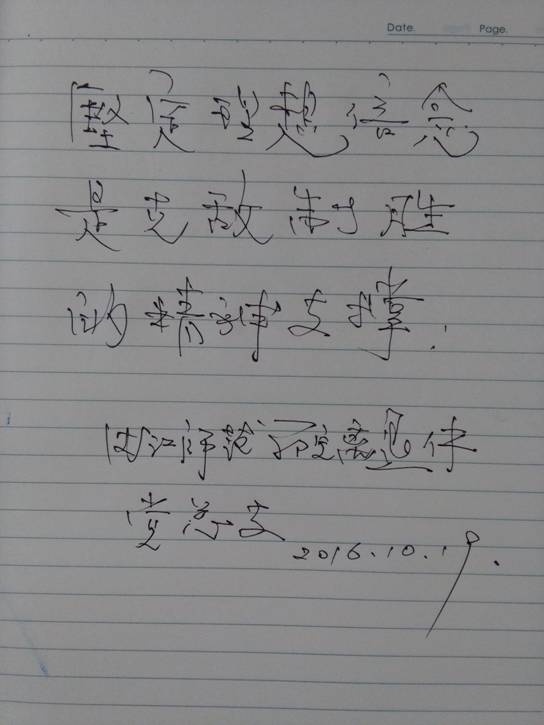 Date. Page.
坚定理想信念
是克敌制胜
的精神支撑.
内江师范学院离退休
党总支 2016.10.19.